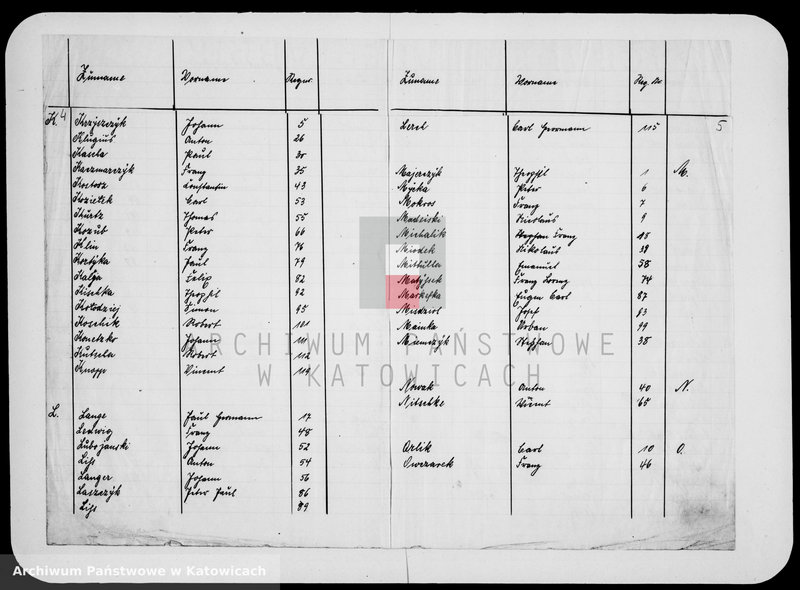 Zuname Vorname Regnr.
K. 4
Krzyczczyk Johann 5
Klugius Anton 26
Kaleta Paul 30
Kaczmarczyk Franz 35
Kostorz Constantin 43
Kozietek Carl 53
Kurtz Thomas 55
Kozub Peter 66
Klin Franz 76
Kostyka Paul 79
Kalya Felix 82
Kischka Theophil 92
Kolodziej Simon 95
Koschik Robert 101
Konetzko Johann 111
Kutzela Robert 112
Knopp Vincent 119
L.
Lange Paul Hermann 17
Ledwig Franz 48
Lubojanski Johann 52
Lihs Anton 54
Langer Johann 56
Laszczyk Peter Paul 86
Lihs 89
Zuname Vorname Reg. Nr.
5
Lerch Carl Herrmann 115
M.
Majerczyk Theophil 1
Myska Peter 6
Mokros Franz 7
Madeiski Nicolaus 9
Michalik Stephan Franz 18
Miosek Nikolaus 39
Mittulla Emanuel 58
Matyssek Franz Lorenz 74
Markefka Eugen Carl 87
Misdziol Josef 83
Manka Urban 99
Miemczyk Stephan 38
Nowak Anton 40 N.
Nitschke Vincent 65
Orlik Carl 10 O.
Owczarek Franz 46
ARCHIWUM PAŃSTWOWE
W KATOWICACH
Archiwum Państwowe w Katowicach